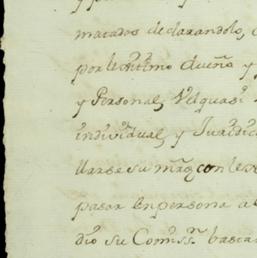 y p
matados declarandolo,
por lexitimo dueño y
y Personal, Velquasi
individual, y Juridic
llarse su mrã con le
pasar en persona a
dio su Comss.n basta